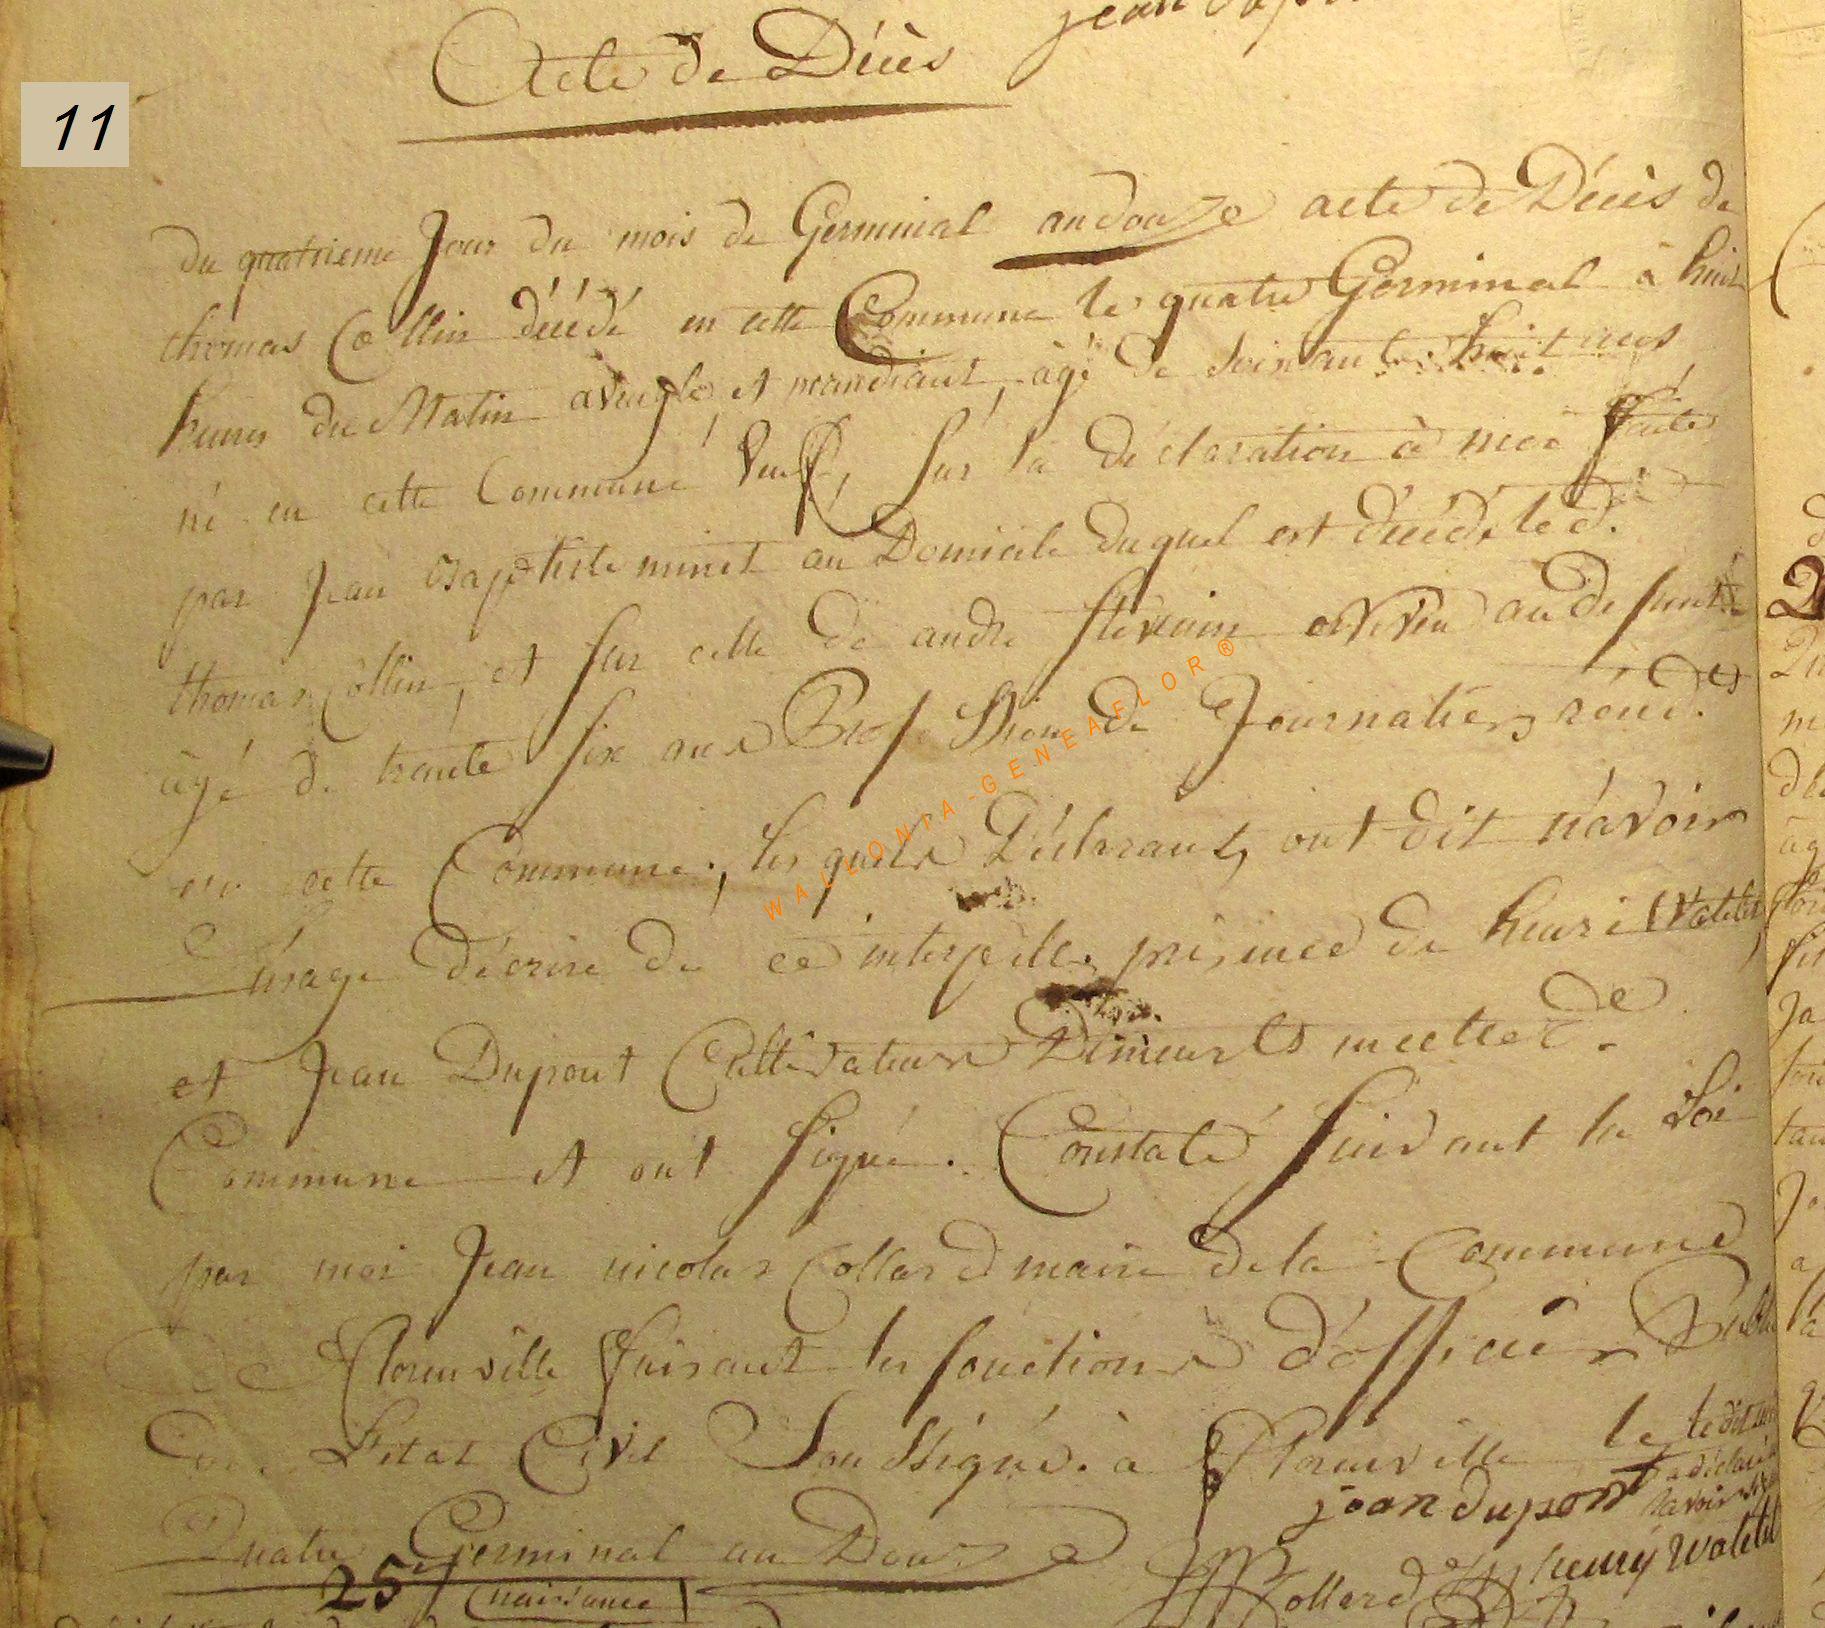 jean
Acte de Décès
11
du quatrieme Jour du mois de Germinal an douze acte de Décès de
thomas Collin décédé en cette Commune le quatre Germinal à huit
heures du Matin aveugle, et mandiant, âgé de soixante huit ans
né en cette Commune Veuf, sur la déclaration à moi faite
par Jean Baptiste minet au Domicile duquel est décédé led.
thomas Collin, et sur celle de andré neveu au defunt
âgé de trente six ans Profession de Journalier résid.
en cette Commune, les quels Déclarants, ont dit n'avoir
usage d'écrire de ce interpellé, présence de henri Watelet
et Jean Dupont Cultivateurs Demeurts en cette d.
Commune et ont signé. Constaté suivant la Loi
par moi Jean nicolas Collard maire de la Commune
De Florenville faisant les fonctions d'officier Public
De L'Etat Civil Soussigné. à Florenville le
Quatre Germinal an Douze
jean dupont
Collard henry Watelet
25 naissance
WALLONIA-GENEAFLOR®